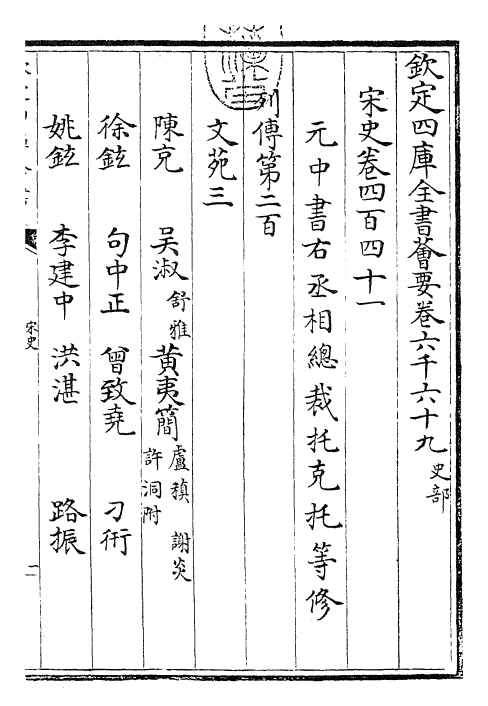 欽定四庫全書薈要卷六千六十九 史部
宋史卷四百四十一
元中書右丞相總裁托克托等修
列傳第二百
文苑三
陳充 吳淑 舒雅 黄夷簡 盧稹 謝炎 許洞附
徐鉉 句中正 曾致堯 刁衎
姚鉉 李建中 洪湛 路振
宋史